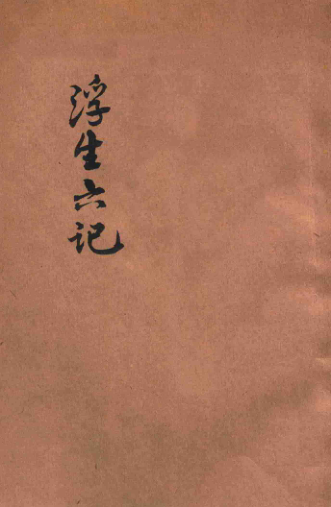 浮生六记